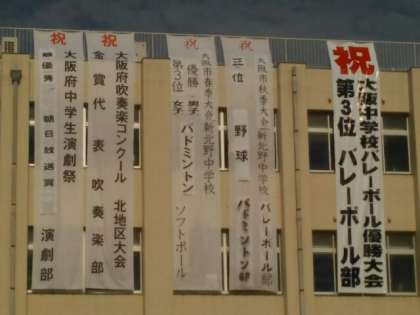 祝
大阪中学校バレーボール優勝大会
第3位 バレーボール部
大阪市秋季大会新北野中学校
バレーボール部
三位 野球
バドミントン部
大阪市春季大会新北野中学校
優勝 男子 バドミントン
第3位 女子 ソフトボール
祝
大阪府吹奏楽コンクール 北地区大会
金賞代表 吹奏楽部
祝
大阪府中学生演劇祭
最優秀 朝日放送賞 演劇部